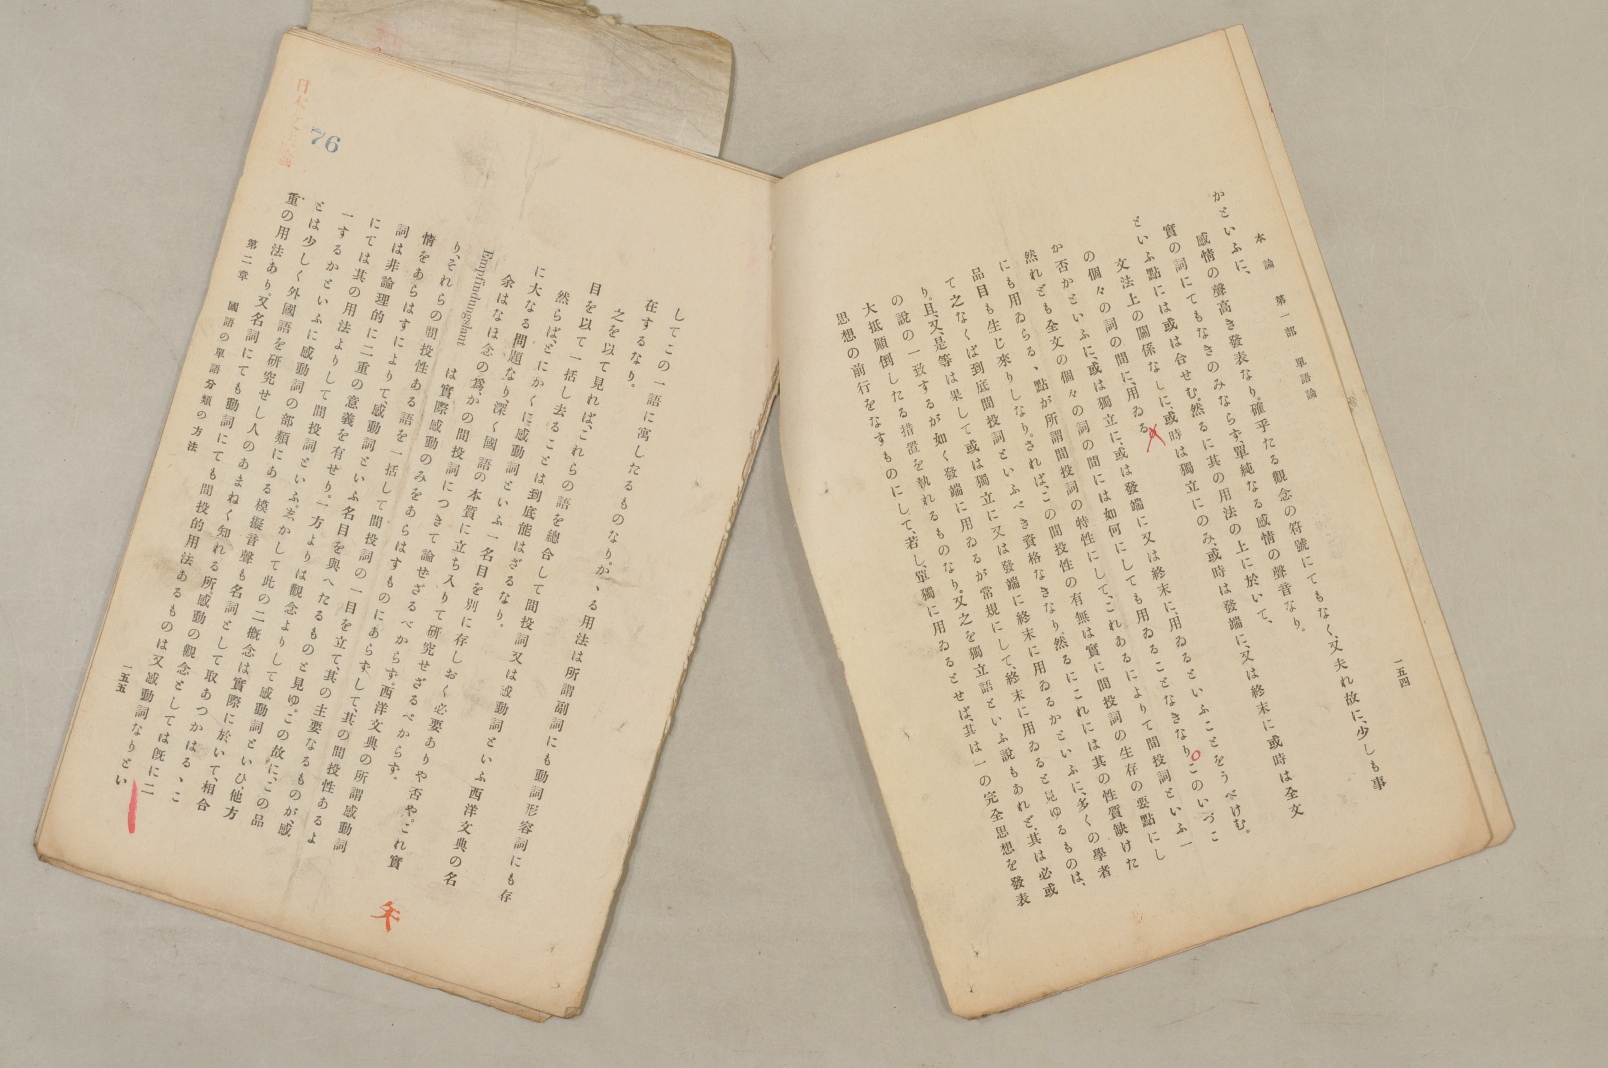 本論　第一部　單語論
一五四
かといふに、感情の聲高き發表なり。確乎たる觀念の符號にてもなく、又夫れ故に、少しも事
實の詞にてもなきのみならず、單純なる感情の聲音なり。
といふ點には或は合せむ。然るに其の用法の上に於いて、
文法上の關係なしに、或時は獨立にのみ、或時は發端に、又は終末に或時は全文
の個々の詞の間に、用ゐる
か否かといふに、或は獨立に、或は發端に又は終末に用ゐるといふことをうべけむ。
然れども全文の個々の詞の間には如何にしても用ゐることなきなり。このいづこ
にも用ゐらるゝ點が所謂間投詞の特性にして、これあるによりて間投詞といふ一
品目も生じ來りしなり。されば、この間投性の有無は實に間投詞の生存の要點にし
て之なくば到底間投詞といふべき資格なきなり。然るにこれには其の性質缺けた
り。且、又是等は果して或は獨立に又は發端に終末に用ゐるかといふに、多くの學者
の説の一致するが如く發端に用ゐるが常規にして、終末に用ゐると見ゆるものは、
大抵顚倒したる措置を執れるものなり。又之を獨立語といふ説もあれど、其は必或
思想の前行をなすものにして、若し、單獨に用ゐるとせば、其は一の完全思想を發表
してこの一語に寓したるものなり。かゝる用法は所謂副詞にも動詞形容詞にも存
在するなり。
之を以て見れば、これらの語を總合して間投詞又は感動詞といふ西洋文典の名
目を以て一括し去ることは到底能はざるなり。
然らば、とにかくに感動詞といふ一名目を別に存しおく必要ありや否や。これ實
に大なる問題なり。深く國語の本質に立ち入りて研究せざるべからず。
余はなほ念の爲、かの間投詞につきて論せざるべからず。西洋文典の所謂感動詞
Empfindungslaut は實際感動のみをあらはすものにあらずして、其の間投性あるよ
り、それらの間投性ある語を一括して間投詞の一目を立て、其の主要なるものが、感
情をあらはすによりて、感動詞といふ名目を與へたるものと見ゆ。この故に、この品
詞は非論理的に二重の意義を有せり。一方よりは觀念よりして感動詞といひ、他方
にては其の用法よりして間投詞といふ。志かして此の二概念は實際に於いて、相合
一するかといふに感動詞の部類にある模擬音聲も名詞として取あつかはるゝこ
とは少しく外國語を研究せし人のあまねく知れる所、感動の觀念としては既に二
重の用法あり。又名詞にても動詞にても間投的用法あるものは又感動詞なりとい
第二章　國語の單語分類の方法
一五五
76